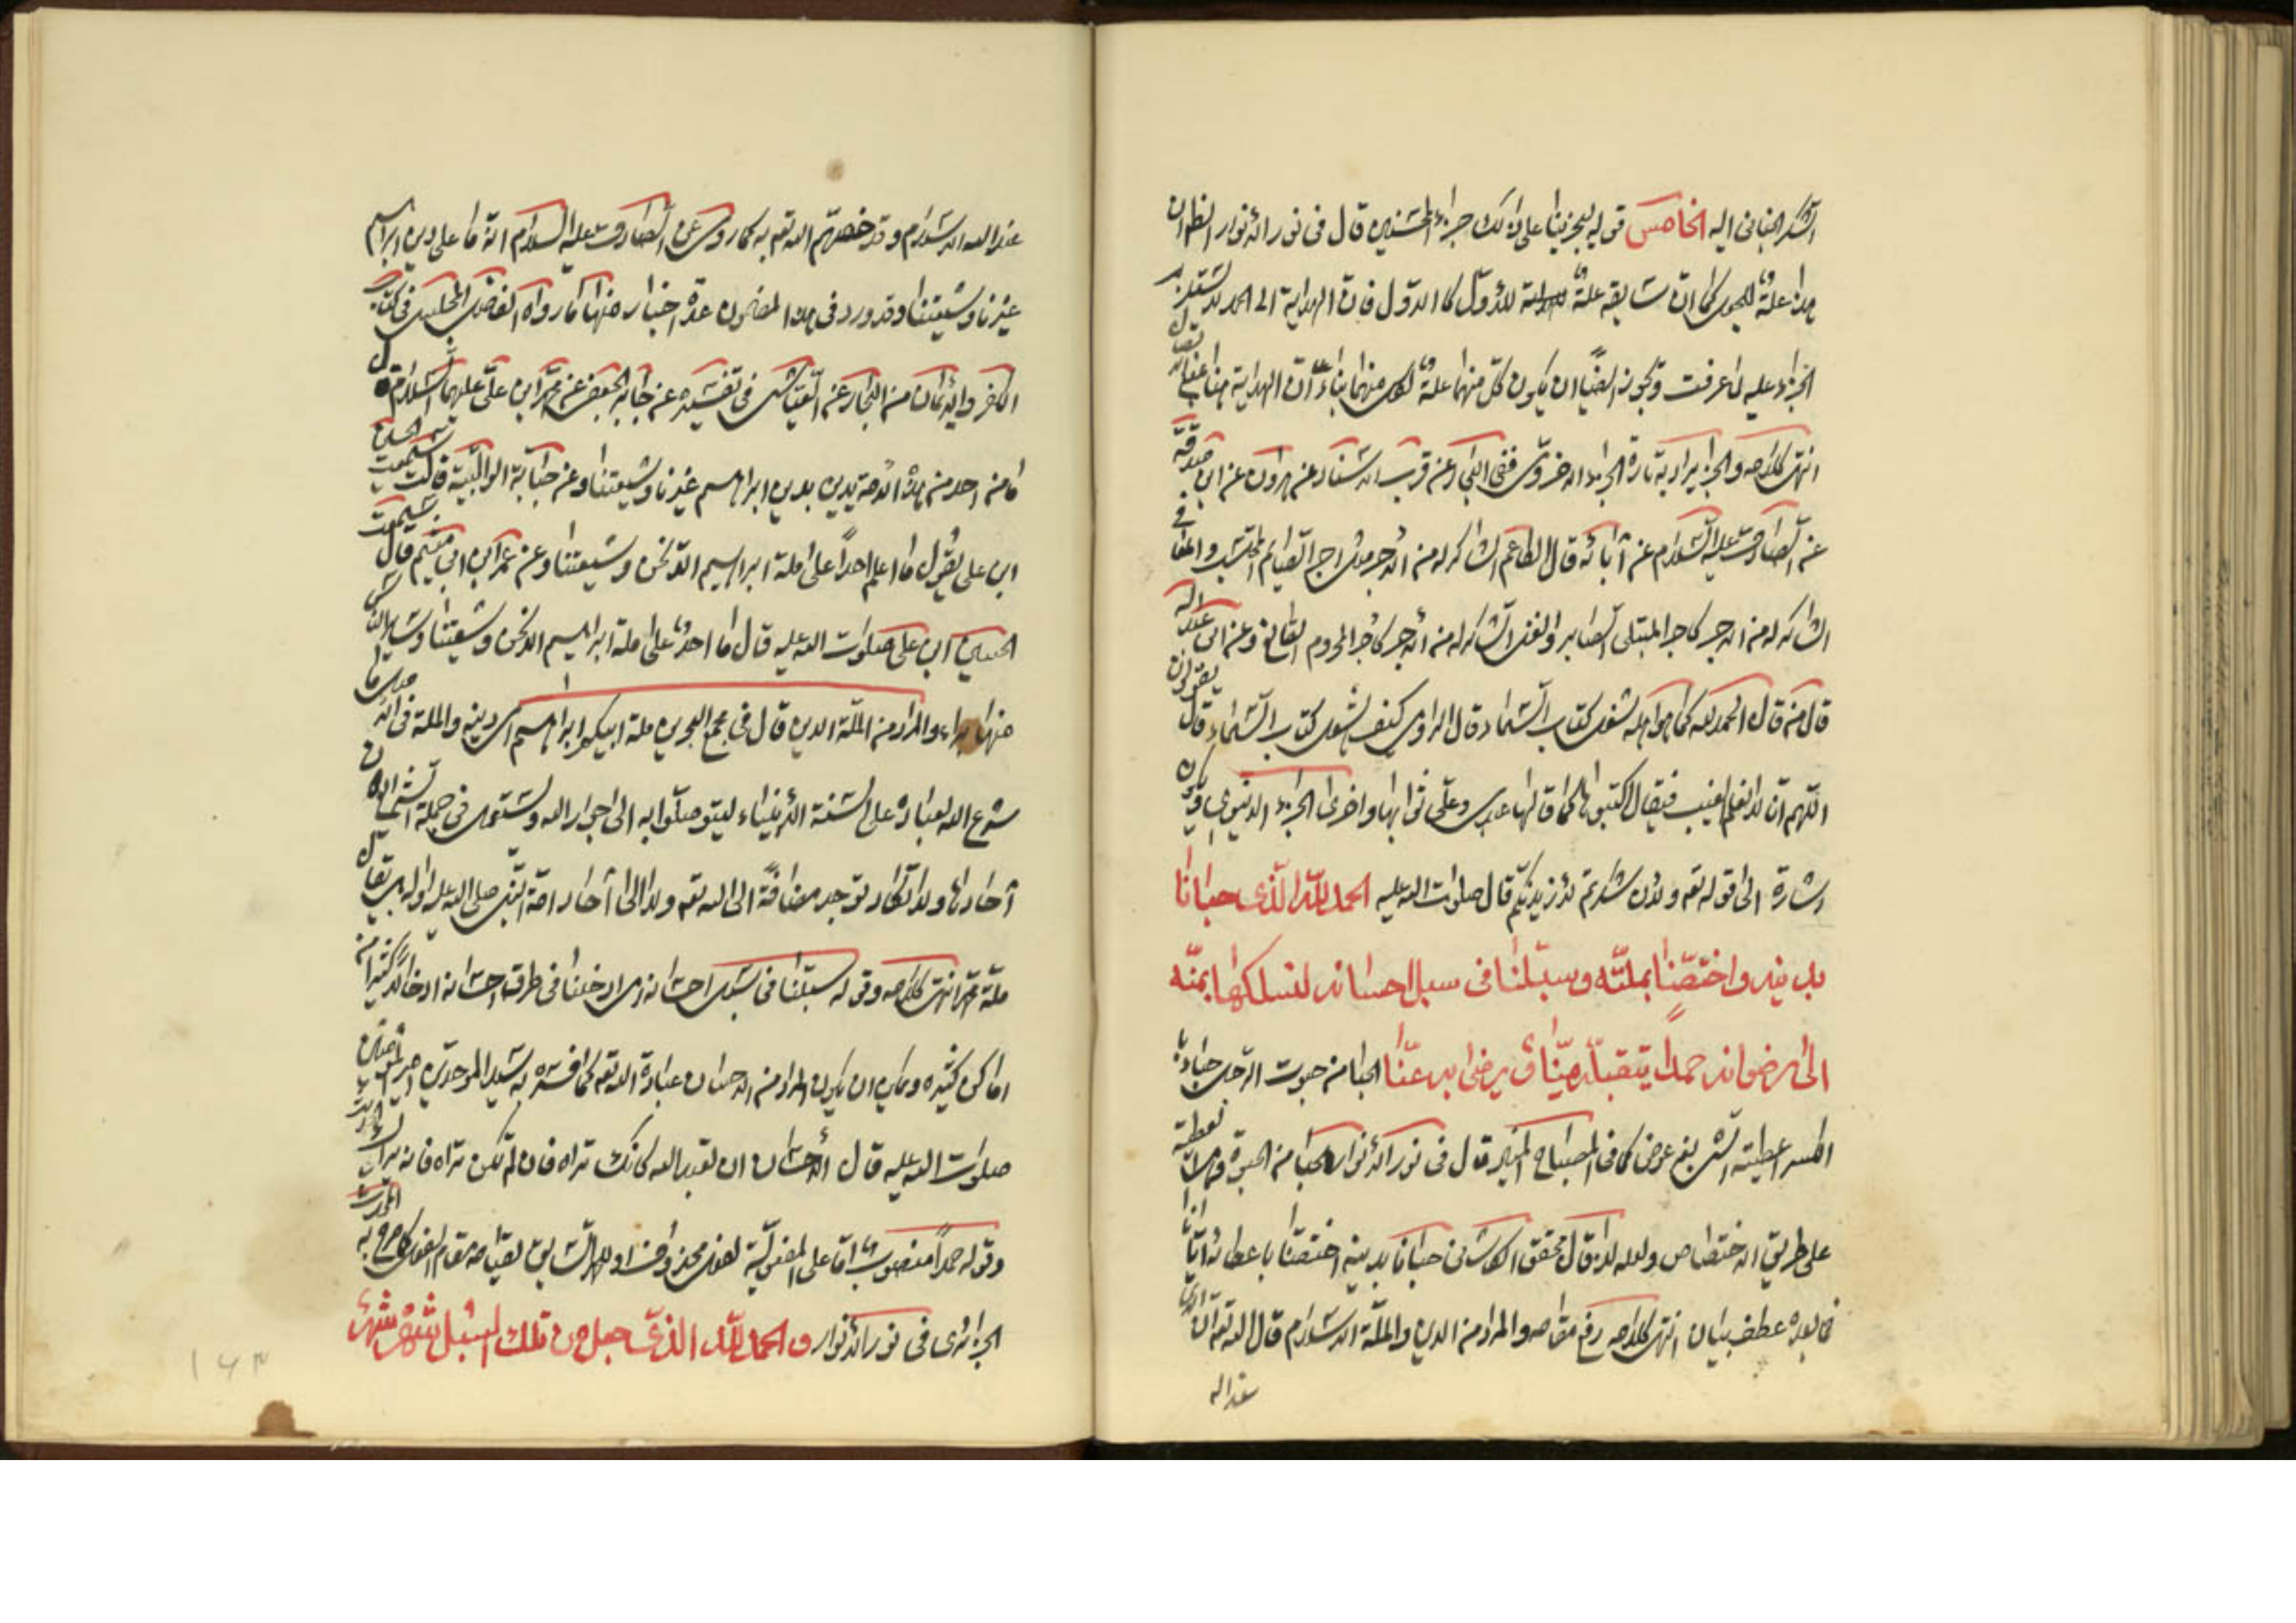 الشكر الجنانى اليه الخامس قوله ليجزينا على ذلك جزاء المحسنين قال فى نور الأنوار الظاهر ان
هذا علة كما ان سابقه علة للأول كالاول فان الهداية الى الحمد
الجزاء عليه لما عرفت ويجوز ايضا ان يكون كل منهما علة لكل منهما بناء على ان الهداية
انتهى كلامه والجزاء يراد به تارة الجزاء الاخروى ففى البحار عن قرب الاسناد عن هارون عن ابن صدقة
عن الصادق عليه السلام عن آبائه قال الطاعم الشاكر له من الاجر مثل اجر الصائم المحتسب والمعافى
الشاكر له من الاجر كاجر المبتلى الصابر والغنى الشاكر له من الاجر كاجر المحروم القانع وعن ابى عبد الله
قال من قال الحمد لله كما هو اهله شغل كتاب السماء قال الراوى كيف يشغل كتاب السماء قال يقولون
اللهم انا لا نعلم الغيب فيقال اكتبوها كما قالها عبدى وعلى ثوابها واخرى الجزاء الدنيوى
اشارة الى قوله تعه ولئن شكرتم لازيدنكم قال صلوات الله عليه الحمد لله الذى حبانا
بدينه واختصنا بملته وسبلنا فى سبل احسانه لنسلكها بمنه
الى رضوانه حمدا يتقبله منا ويرضى به عنا الحبا من حبوت الرجل حباء
اعطيته الشئ بغير عوض كما فى المصباح المنير قال فى نور الأنوار الحبا من الحبوة
على طريق الاختصاص ولعله لذا قال محقق الكاشى حبانا بدينه اختصنا باعطائه ايانا
فما بعده عطف بيان انتهى كلامه رفع مقامه والمراد من الدين والملة الاسلام قال الله تعه ان الدين
عند الله
عند الله الاسلام وقد خصهم الله تعه به كما روى عن الصادق عليه السلام انه ما على دين ابراهيم
غيرنا وشيعتنا وقد ورد فى هذا المضمون عدة اخبار منها ما رواه الفاضل المجلسى فى كتاب
الكفر والايمان من البحار عن العياشى فى تفسيره عن جابر الجعفى عن محمد ابن على عليهما السلام قال
ما من احد من هذه الامة يدين بدين ابراهيم غيرنا وشيعتنا وعن حبابة الوالبية قالت سمعت الحسين
ابن على يقول ما اعلم احدا على ملة ابراهيم الا نحن وشيعتنا وعن عمر ابن ابى ميثم قال سمعت
الحسين ابن على صلوات الله عليه قال ما احد على ملة ابراهيم الا نحن وشيعتنا وسائر الناس
منها براء والمراد من الملة الدين قال فى مجمع البحرين ملة ابيكم ابراهيم اى دينه والملة فى الاصل ما
شرع الله لعباده على السنة الأنبياء ليتوصلوا به الى جوار الله ويستعمل فى جملة الشرايع دون
آحادها ولا تكاد توجد مضافة الى الله تعه ولا الى آحاد امة النبى صلى الله عليه واله بل يقال
ملة محمد انتهى كلامه وقوله سبلنا فى سبل احسانه اى ادخلنا فى طرق احسانه ادخالا كثيرا من
اماكن كثيره ويمكن ان يكون المراد من الاحسان عبادة الله تعه كما فسره به سيد الموحدين امير المؤمنين
صلوات الله عليه قال الاحسان ان تعبد الله كانك تراه فان لم تكن تراه فانه يراك
وقوله حمدا منصوب اما على المفعولية لفعل محذوف او للسابق لقيامه مقام الفعل كما صرح به
الجزائرى فى نور الأنوار والحمد لله الذى جعل من تلك السبل شهره شهر
۱۶۳